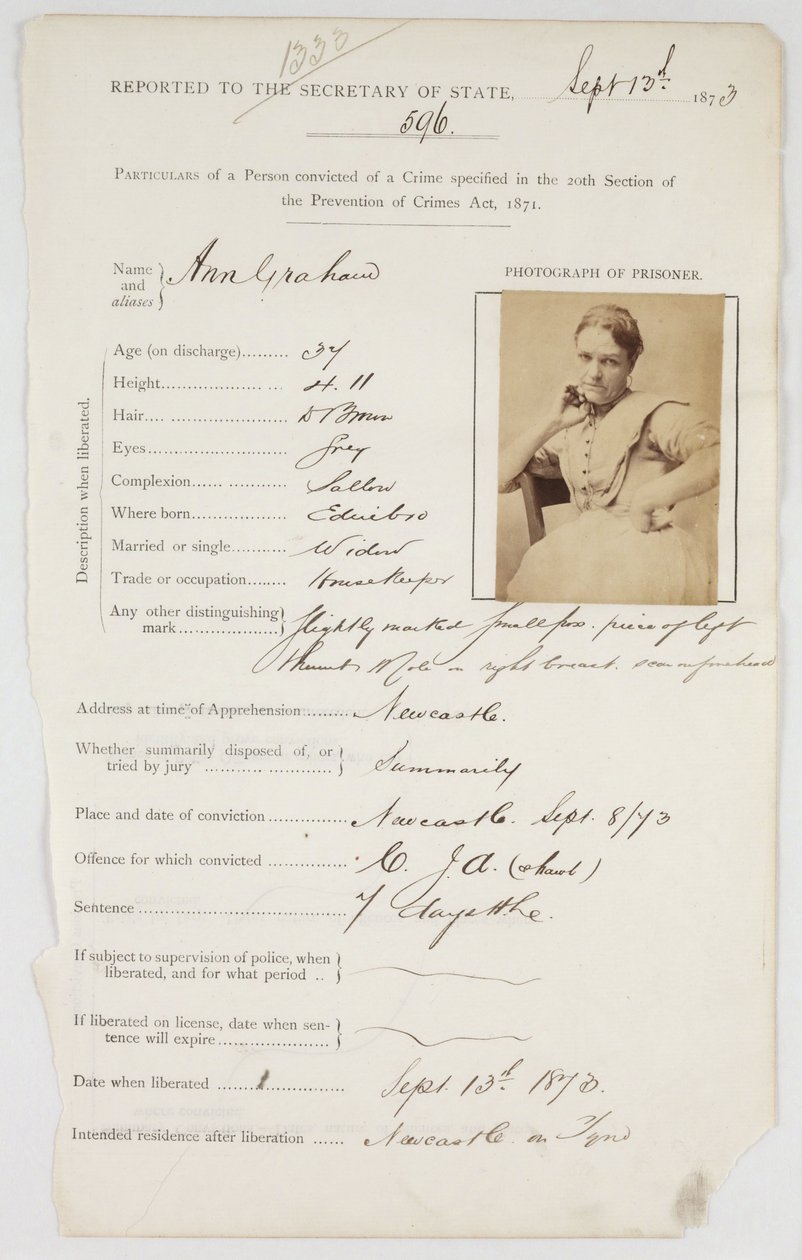 1333
REPORTED TO THE SECRETARY OF STATE, Sept 13th 1873
596.
PARTICULARS of a Person convicted of a Crime specified in the 20th Section of
the Prevention of Crimes Act, 1871.
Name and aliases } Ann Graham
PHOTOGRAPH OF PRISONER.
Description when liberated.
Age (on discharge)......... 37
Height.................... 4. 11
Hair.... ...................... D Brown
Eyes.......................... Grey
Complexion...... ............ Sallow
Where born.................. Edinbro
Married or single........... Widow
Trade or occupation........ Housekeeper
Any other distinguishing mark.................... } Slightly marked Small pox. piece of left
Mole on right breast. scar on forehead
Address at time of Apprehension.......... Newcastle.
Whether summarily disposed of, or tried by jury ........................ } Summarily
Place and date of conviction............... Newcastle. Sept. 8/73
Offence for which convicted ............... (shawl)
Sentence....................................... 7 days
If subject to supervision of police, when
liberated, and for what period .. }
If liberated on license, date when sen-
tence will expire...................... }
Date when liberated ........................ Sept. 13th 1873.
Intended residence after liberation ...... Newcastle on Tyne